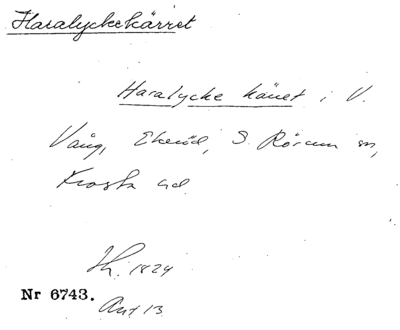 Haralyckekärret
Haralycke käret i V.
Vång, Ekeröd, S. Rörum sn,
Frosta hd
Sk. 1824
Nr 6743.
Akt 13